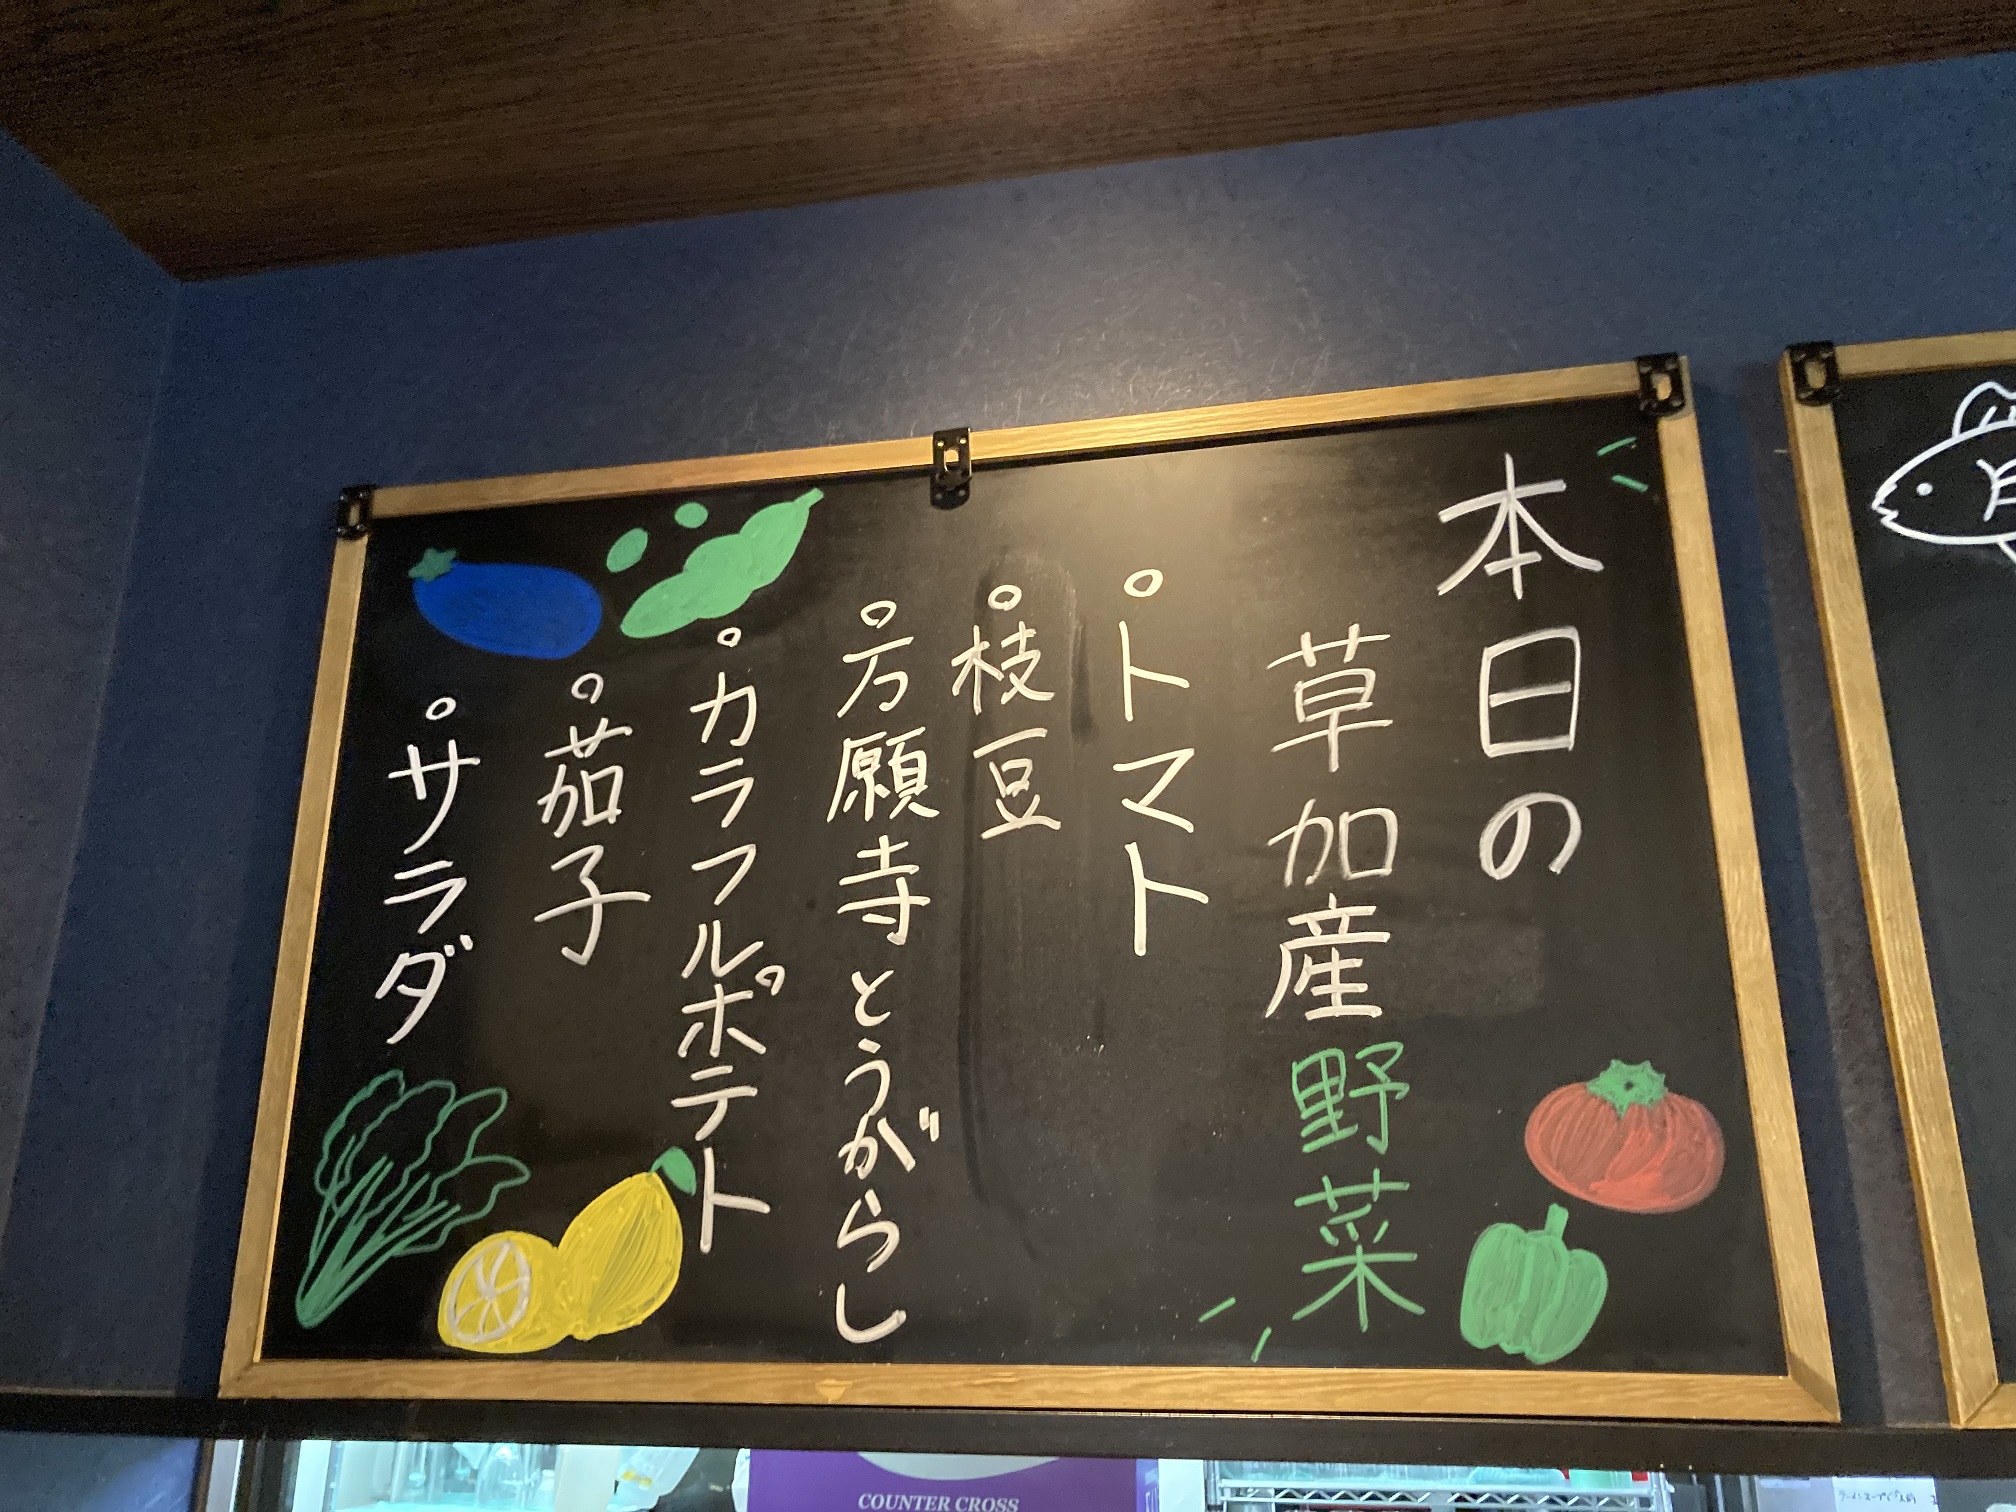 本日の
草加産野菜
○トマト
○枝豆
○万願寺とうがらし
○カラフルポテト
○茄子
○サラダ
COUNTER CROSS